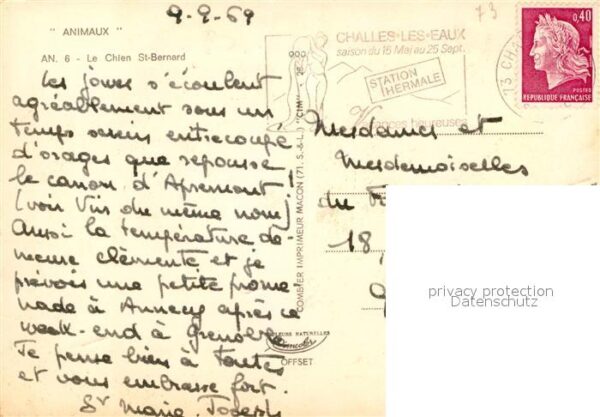 9-9-69
73
" ANIMAUX "
AN. 6 - Le Chien St-Bernard
CHALLES-LES-EAUX
saison du 15 Mai au 25 Sept.
STATION
THERMALE
Vacances heureuses
0,40
POSTES
REPUBLIQUE FRANÇAISE
Les jours s'écoulent
agréablement sous un
temps serein entrecoupé
d'orages que repousse
le canon d'Apremont !
(voir Vins du même nom)
Aussi la température de-
meure clémente et je
prévois une petite prome-
nade à Annecy après ce
week-end à Grenoble
Je pense bien à toutes
et vous embrasse fort.
Sr Marie Joseph
COMBIER IMPRIMEUR MACON (71. S.-&-L.) "CIM"
COULEURS NATURELLES
OFFSET
Mesdames et
Mesdemoiselles
du
18,
privacy protection
Datenschutz